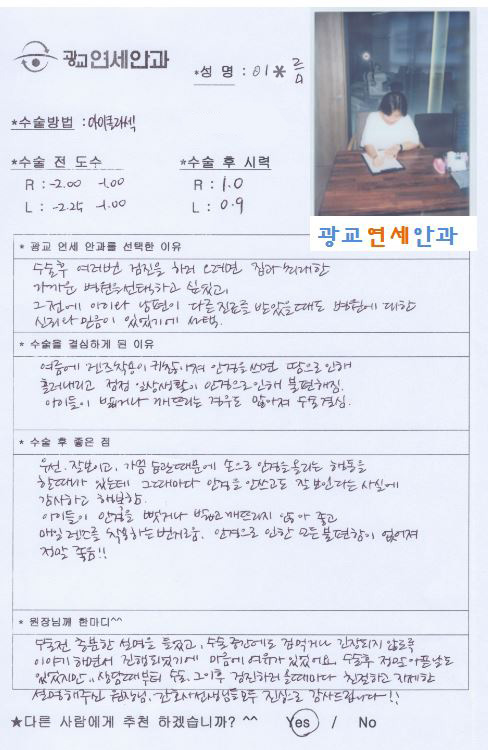 광교연세안과
*성 명 : 이*
*수술방법 : 아이클래식
*수술 전 도수
*수술 후 시력
R : -2.00 -1.00
R : 1.0
L : -2.25 -1.00
L : 0.9
광교연세안과
* 광교 연세 안과를 선택한 이유
수술후 여러번 검진을 하러 오려면 집과 최대한
가까운 병원을 선택하고 싶었고,
그전에 아이와 남편이 다른 진료를 받았을때도 병원에 대한
신뢰와 믿음이 있었기에 선택.
* 수술을 결심하게 된 이유
여름에 렌즈착용이 귀찮아져 안경을쓰면 땀으로 인해
흘러내리고 점점 일상생활이 안경으로 인해 불편해짐.
아이들이 밟거나 깨뜨리는 경우도 많아져 수술결심.
* 수술 후 좋은 점
우선. 잘보이고, 가끔 습관때문에 손으로 안경을올리는 행동을
할때가 있는데 그때마다 안경을 안쓰고도 잘 보인다는 사실에
감사하고 행복함.
아이들이 안경을 뺏거나 밟고 깨뜨리지 않아 좋고
매일 렌즈를 착용하는 번거로움. 안경으로 인한 모든 불편함이 없어져
정말 좋음!!
* 원장님께 한마디^^
수술전 충분한 설명을 들었고, 수술중간에도 겁먹거나 긴장되지 않도록
이야기 하면서 진행되었기에 마음에 여유가 있었어요. 수술후 정말 아픈날도
있었지만.. 상담때부터 수술. 그 이후 검진하러 올때마다 친절하고 자세한
설명해주신 원장님. 간호사선생님들 모두 진심으로 감사드립니다!!
★다른 사람에게 추천 하겠습니까? ^^ Yes / No